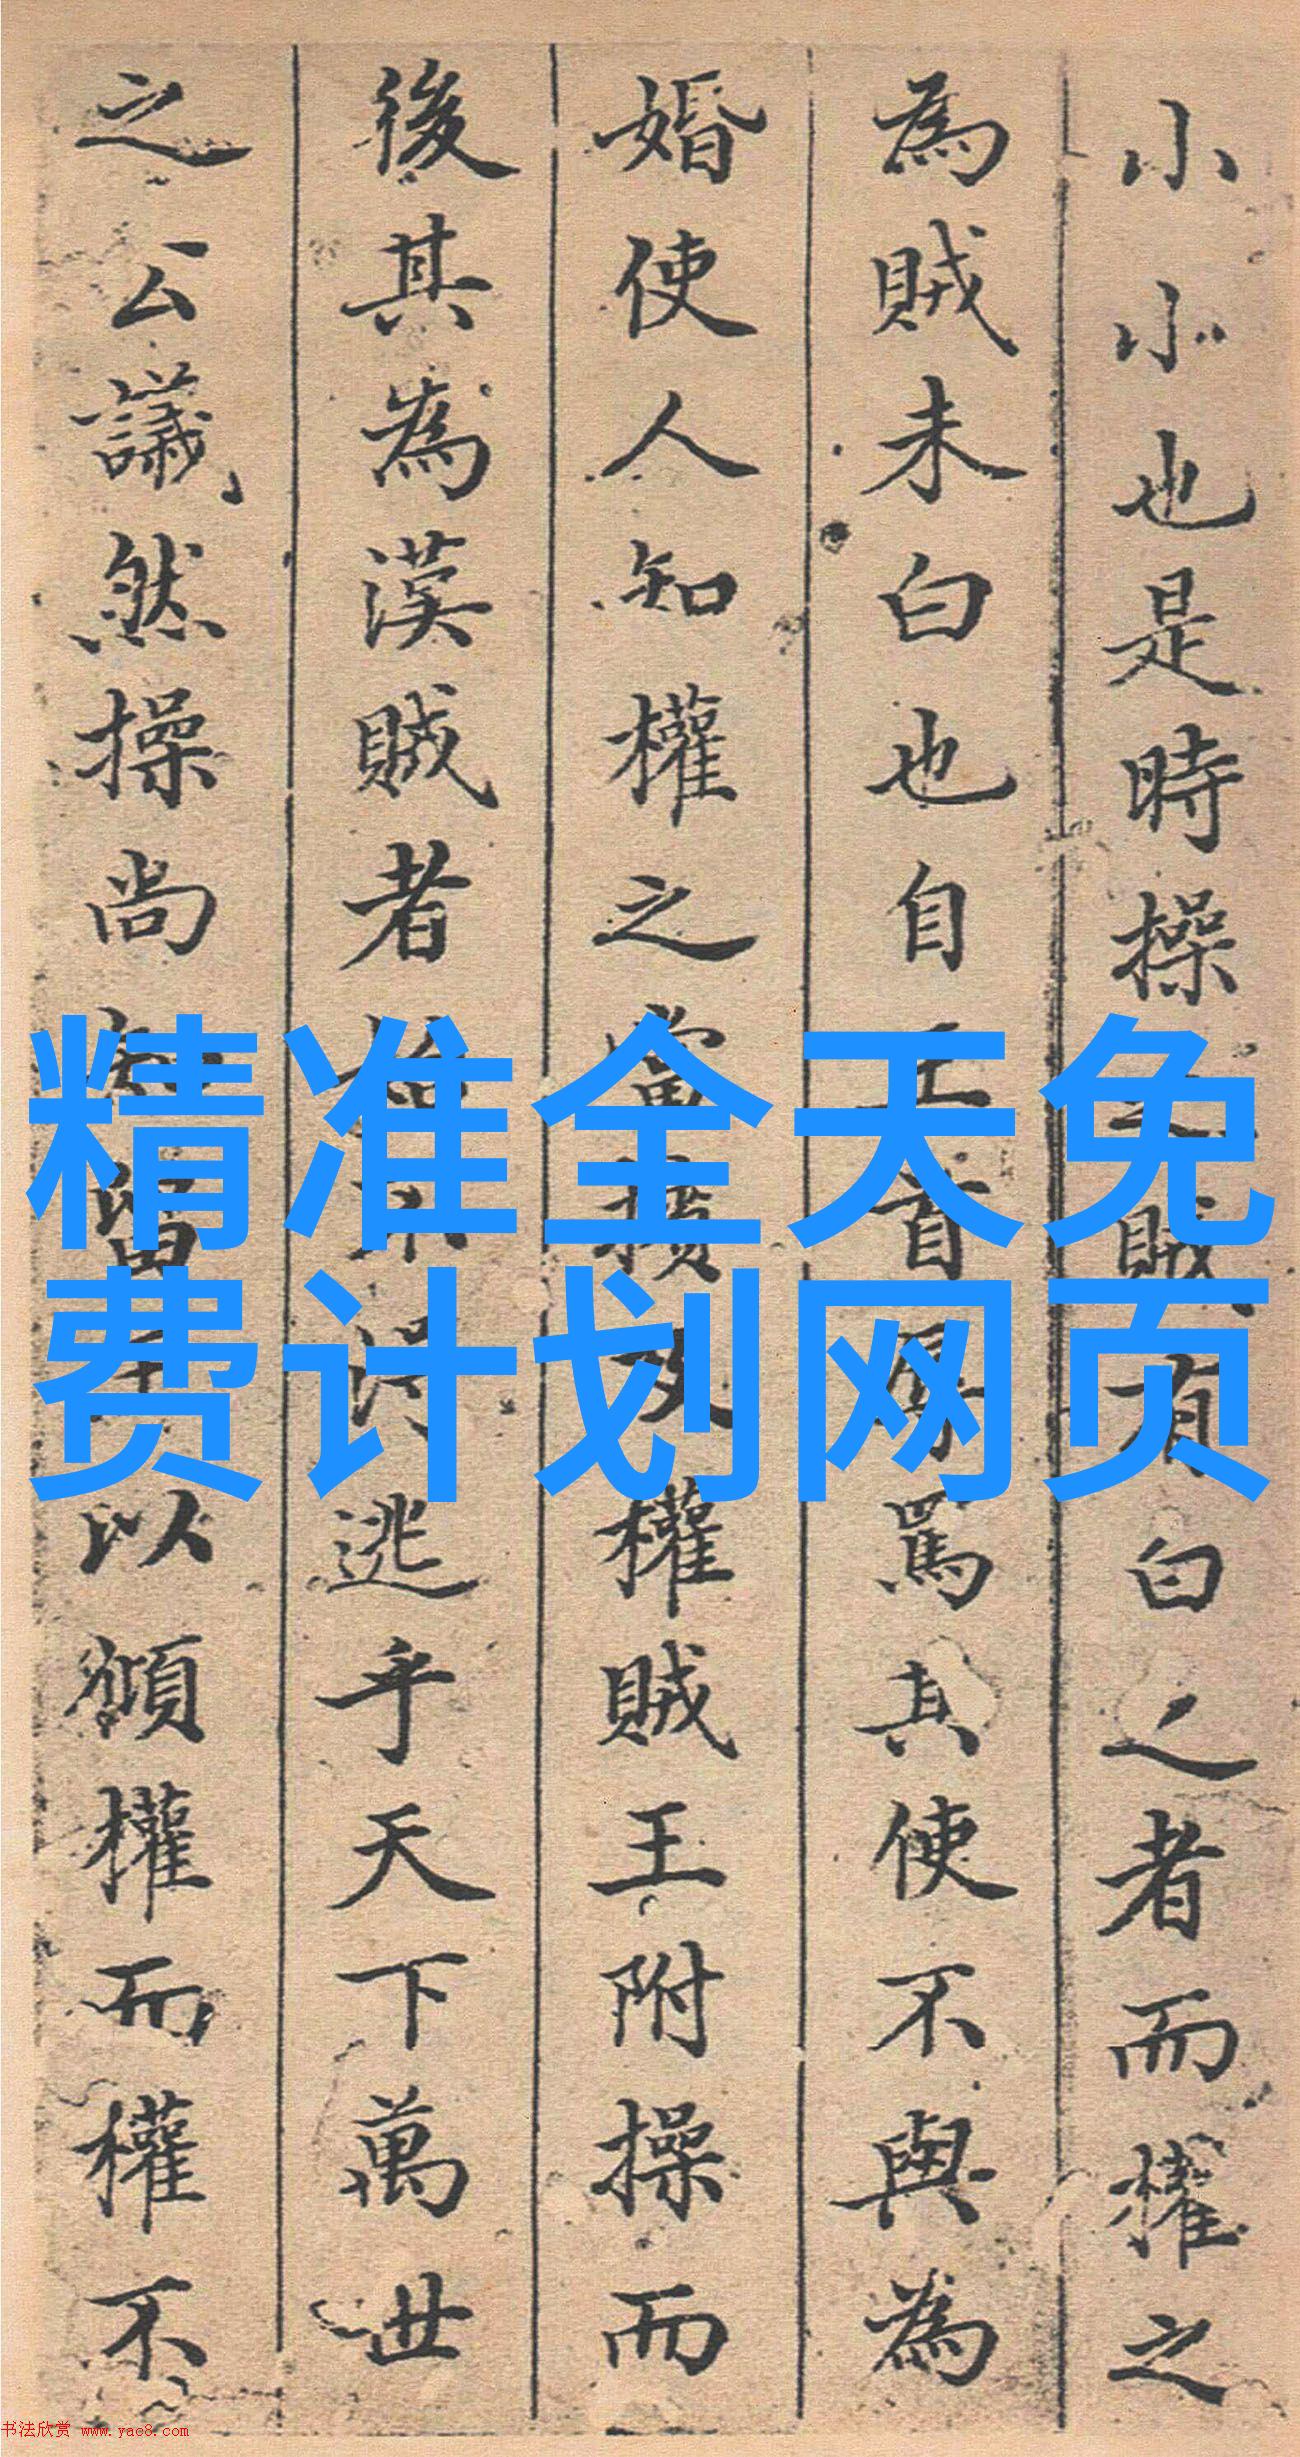 小小也是時操之賊有白之者而權之
為賊未白也自王首辱罵其使不與為
婚使人知權之及權賊王附操而
後其為漢賊者不得逃乎天下萬世
之公議然操尚留以權而權不
精准全天免
费计划网页
书法欣赏 www.yac8.com